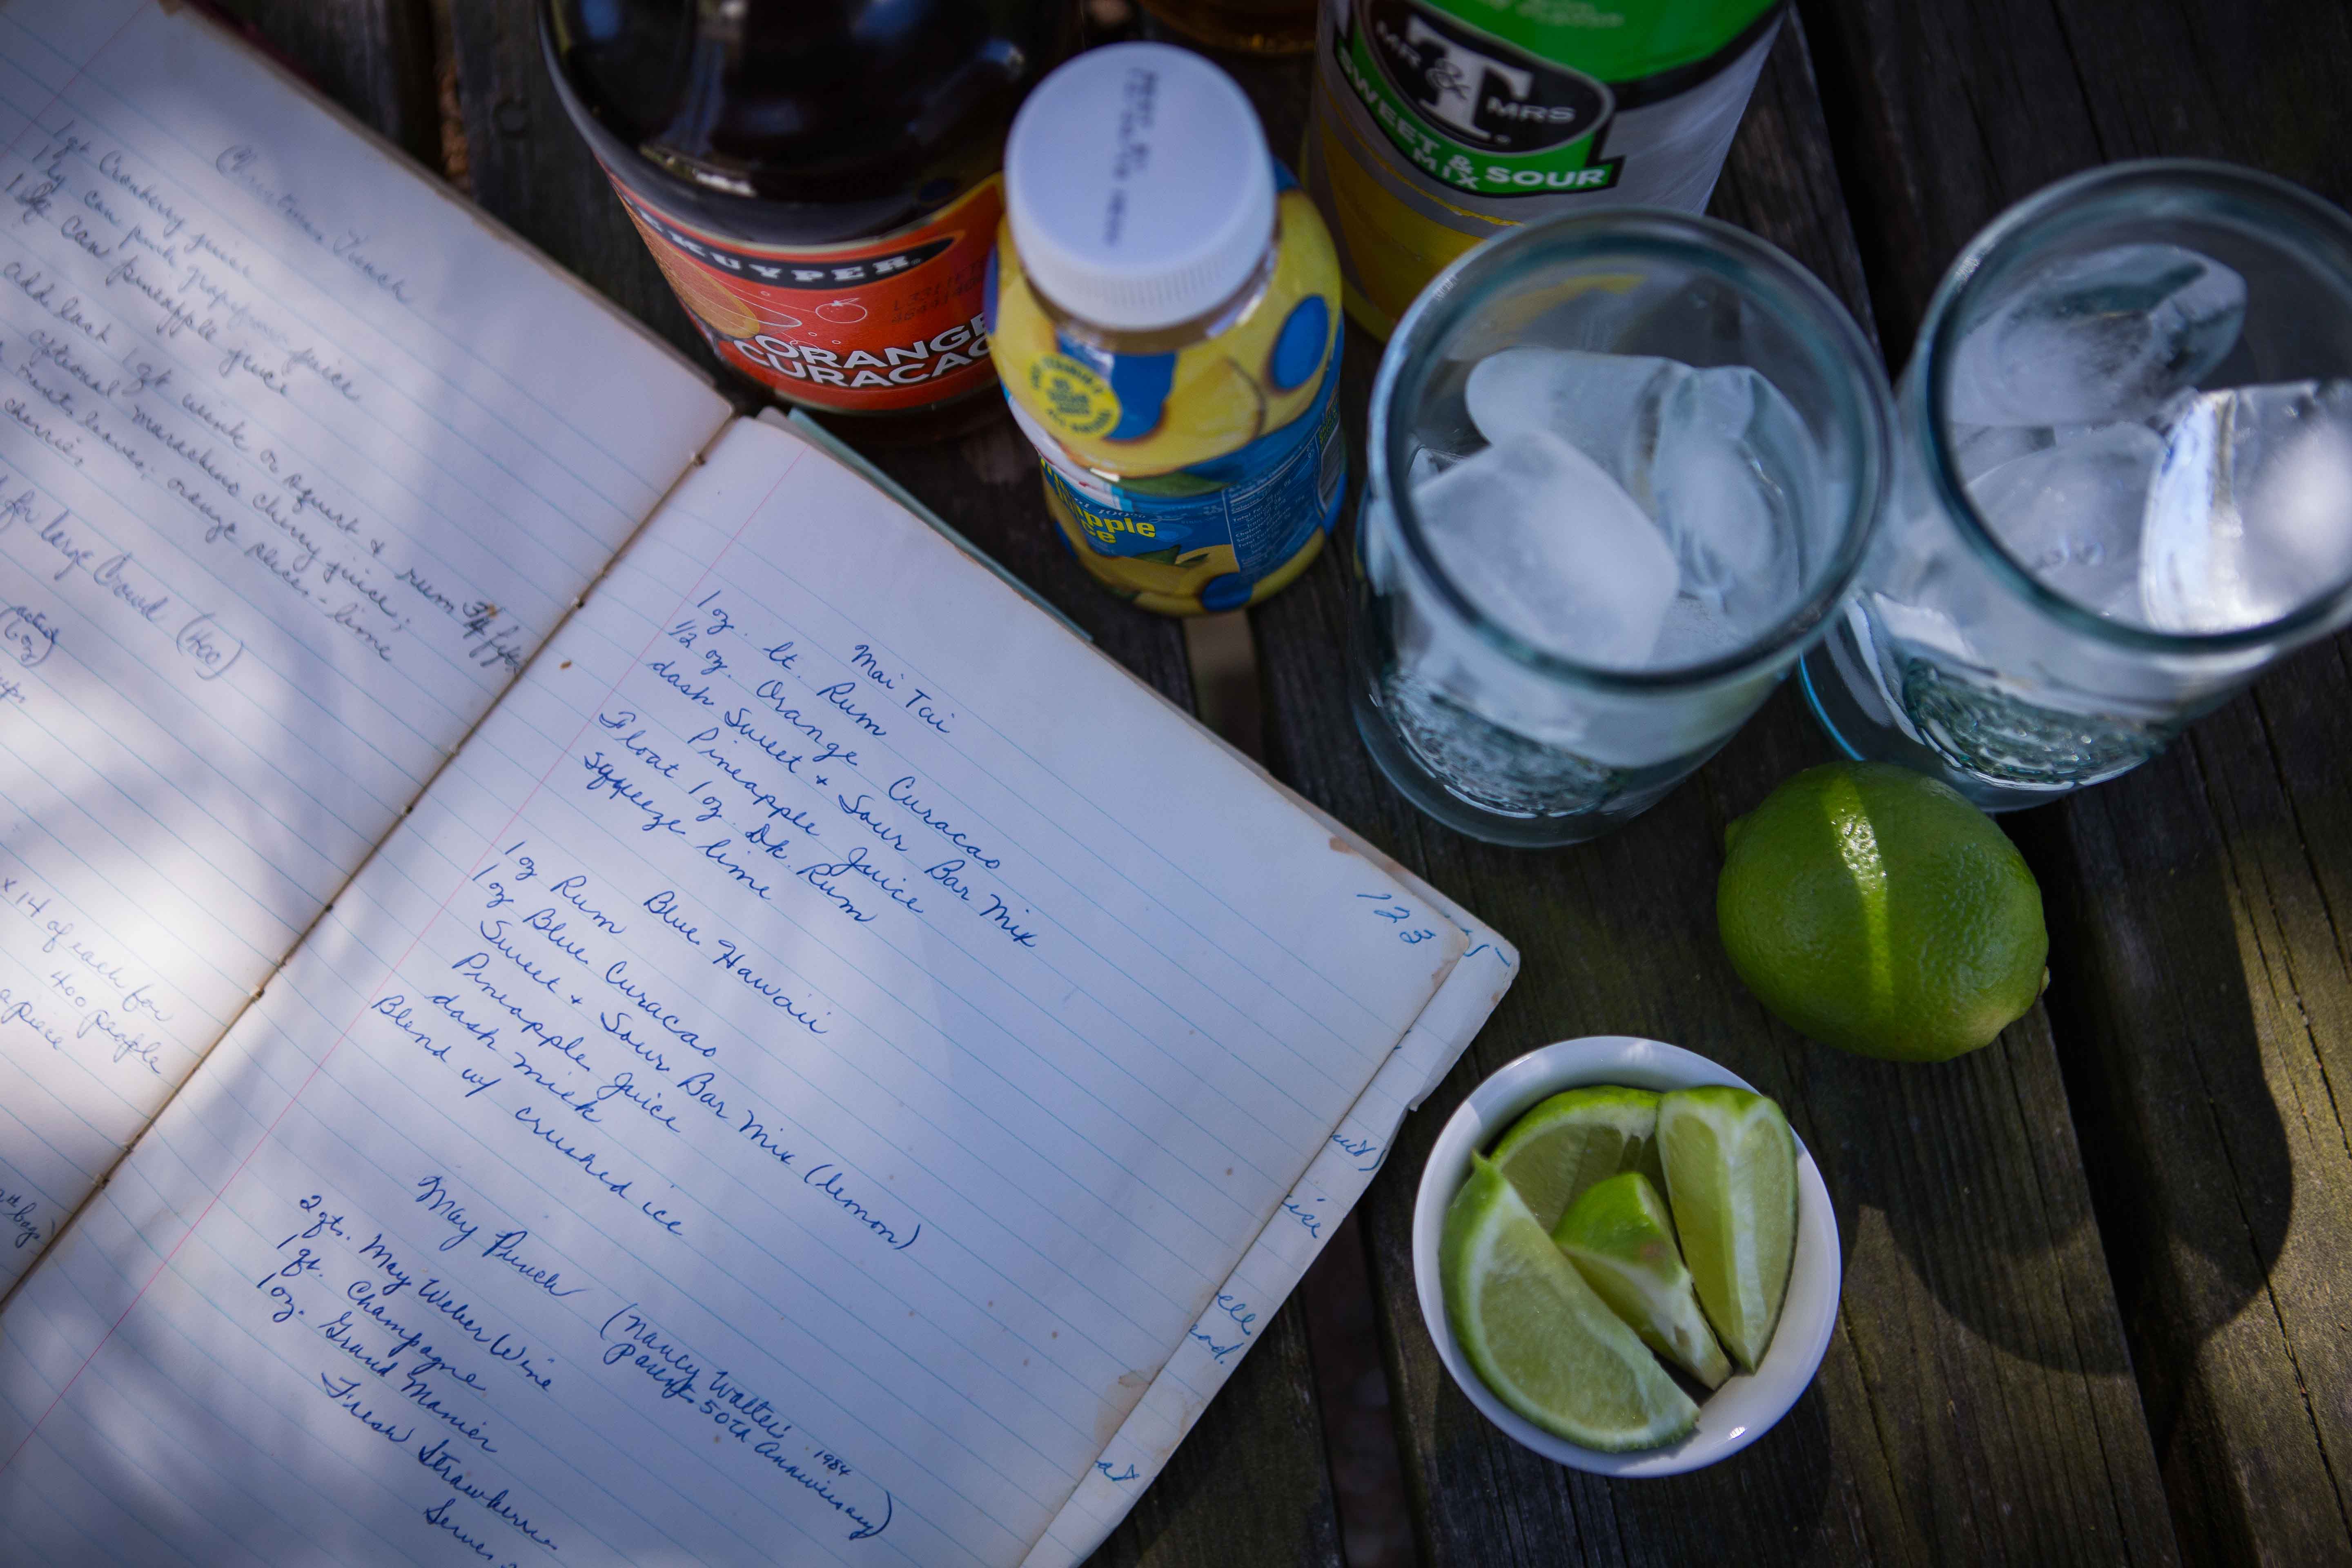 Christmas Punch
1 qt Cranberry juice
1 lg can pink grapefruit juice
1 lg can pineapple juice
add last 1 qt wink or squirt & rum 3/4 fifth
optional maraschino cherry juice;
leaves, orange slices - lime
cherries,
for large Crowd (400)
(6 oz)
x 14 of each for
400 people
apiece
bags)
Mai Tai
1 oz. lt. Rum
1/2 oz. Orange Curacao
dash Sweet + Sour Bar Mix
Pineapple Juice
Float 1 oz. Dk. Rum
Squeeze lime
Blue Hawaii
1 oz Rum
1 oz Blue Curacao
Sweet + Sour Bar Mix (lemon)
Pineapple Juice
dash milk
Blend w/ crushed ice
May Punch (Nancy Walters 1984
Parents 50th Anniversary)
2 qts. May Weber Wine
1 qt. Champagne
1 oz. Grand Manier
Fresh Strawberries
123
KUYPER
ORANGE
CURACAO
100%
MR & MRS
T
SWEET & SOUR
MIX